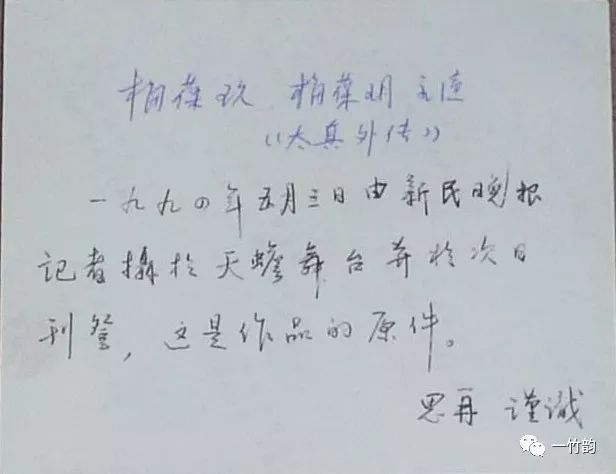 梅葆玖 梅葆玥 主演
《太真外传》
一九九四年五月三日由新民晚报
记者摄於天蟾舞台并於次日
刊登,这是作品的原件。
思再 谨识
一竹韵